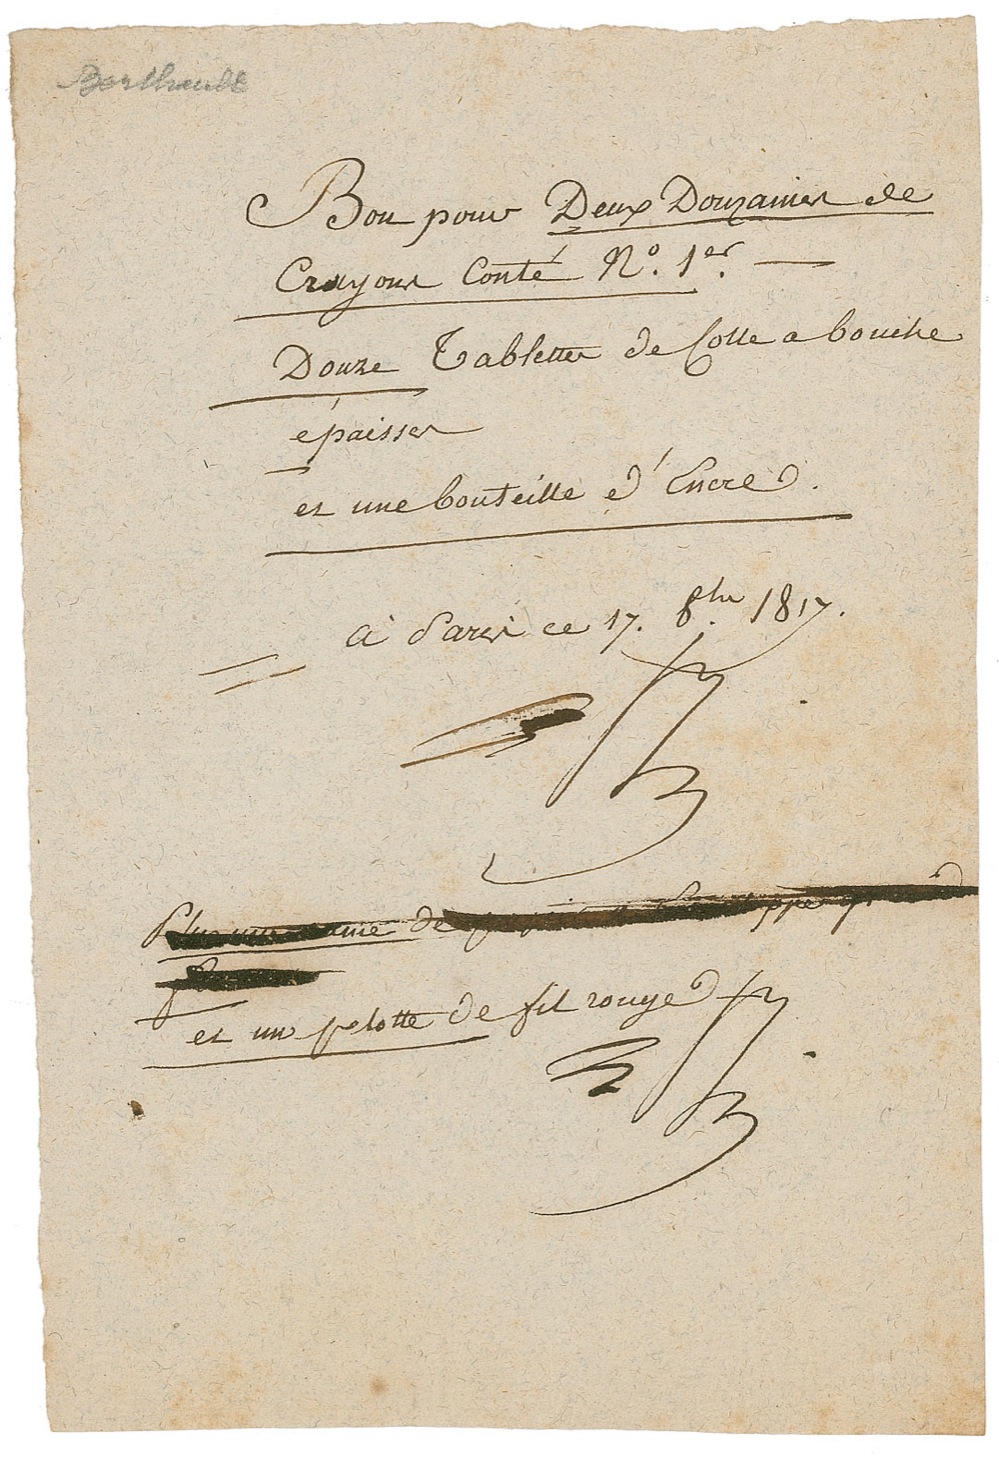 Berthault
Bon pour Deux Douzaines de
Crayons Conté N.º 1.er
Douze Tablettes de Colle a bouche
épaisses
et une bouteille d'Encre.
à Paris ce 17. 8.bre 1817.
Plus une de
et un pelotte de fil rouge